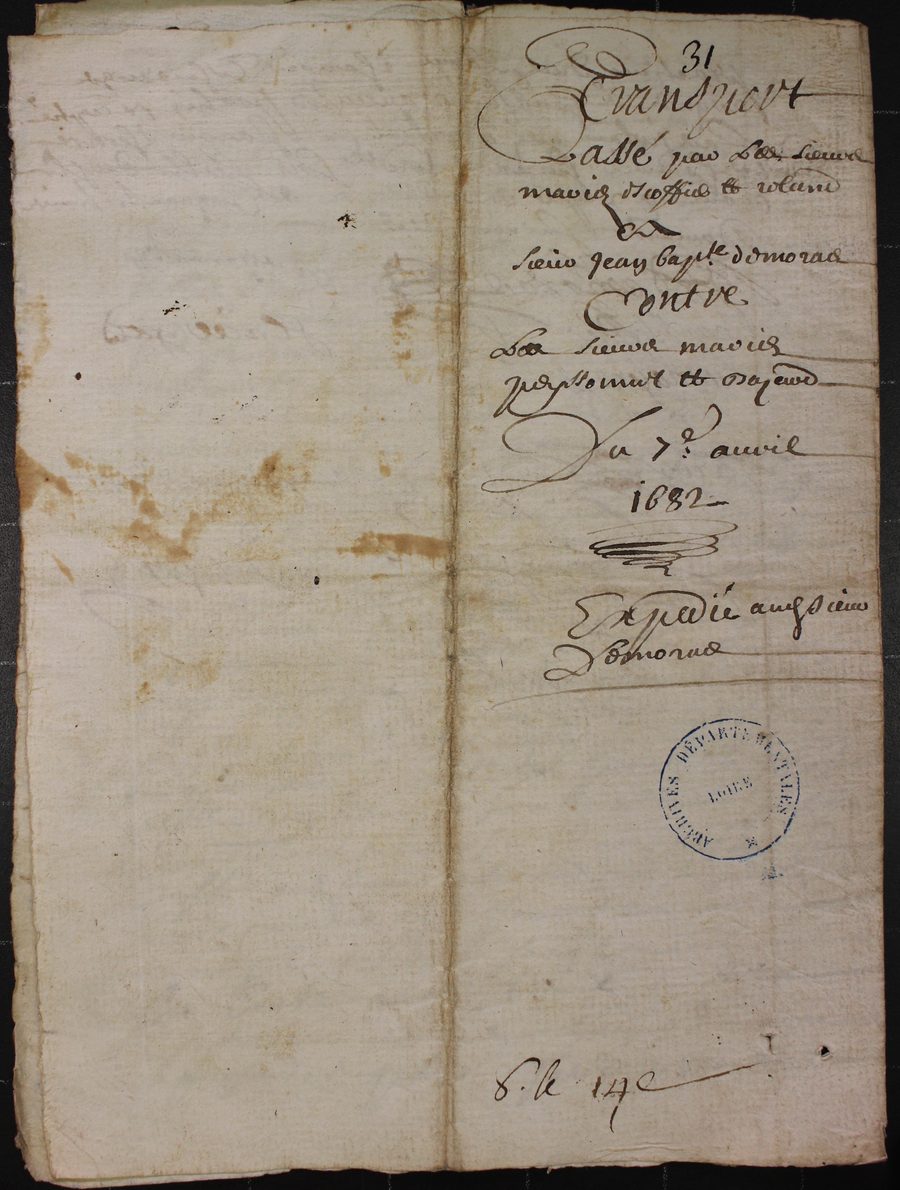 31
Transport
Passé par Les sieurs
mavier escoffié et roland
A
sieur Jean bapte demoras
Contre
Les sieurs mavier
peyssonnel et
Du 7e auvril
1682
Expedié audt Sieur
Demoras
ARCHIVES DÉPARTEMENTALES
LOIRE